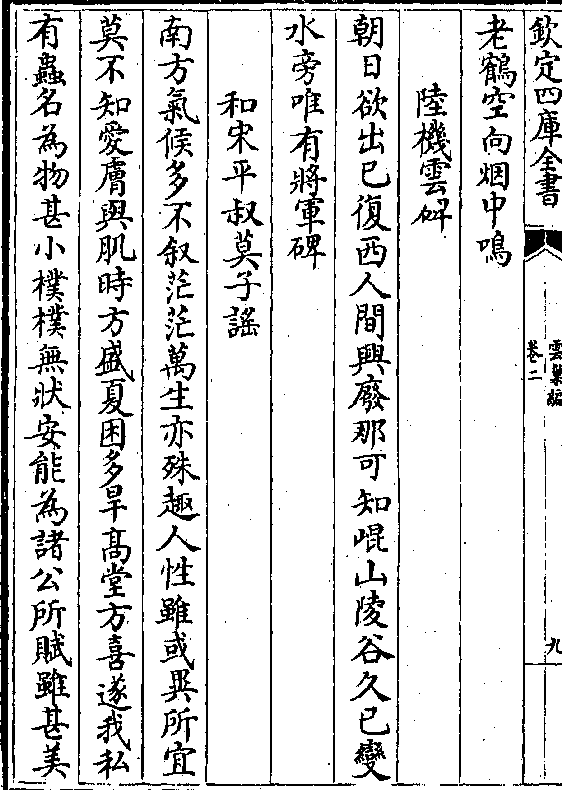 欽定四庫全書
雲巢編
卷二
九
老鶴空向烟中鳴
陸機雲碑
朝日欲出已復西人間興廢那可知崐山陵谷久已變
水旁唯有將軍碑
和宋平叔莫子謠
南方氣候多不叙茫茫萬生亦殊趣人性雖或異所宜
莫不知愛膚與肌時方盛夏困多旱髙堂方喜遂我私
有蟲名為物甚小樸樸無狀安能為諸公所賦雖甚美